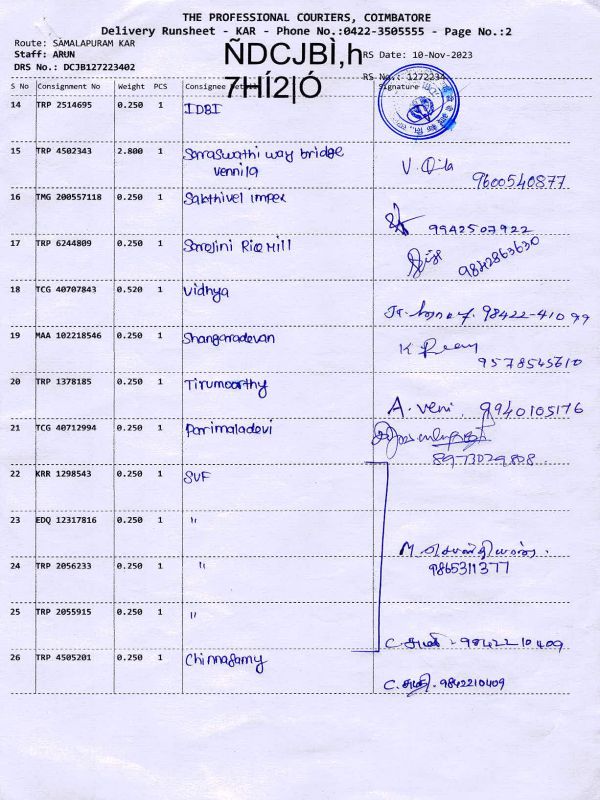 THE PROFESSIONAL COURIERS, COIMBATORE
Delivery Runsheet - KAR - Phone No.:0422-3505555 - Page No.:2
Route: SAMALAPURAM KAR
Staff: ARUN
ÑDCJBÌ,h
RS Date: 10-Nov-2023
DRS No.: DCJB127223402
7HÍ2|Ó
RS No.: 1272234
S No Consignment No Weight PCS Consignee Signature
14 TRP 2514695 0.250 1 IDBI
15 TRP 4502343 2.800 1 Saraswathi way bridge
vennila
9600540877
16 TMG 200557118 0.250 1 Sakthivel impex
9942507922
17 TRP 6244809 0.250 1 Sarojini Rice Mill
9842863630
18 TCG 40707843 0.520 1 Vidhya
98422-41099
19 MAA 102218546 0.250 1 Shangaradevan
K
9578545610
20 TRP 1378185 0.250 1 Tirumoorthy
A. Veni. 9940105176
21 TCG 40712994 0.250 1 Parimaladevi
8973029808
22 KRR 1298543 0.250 1 SVF
23 EDQ 12317816 0.250 1 "
24 TRP 2056233 0.250 1 "
9865311377
25 TRP 2055915 0.250 1 "
9842210409
26 TRP 4505201 0.250 1 Chinnasamy
9842210409